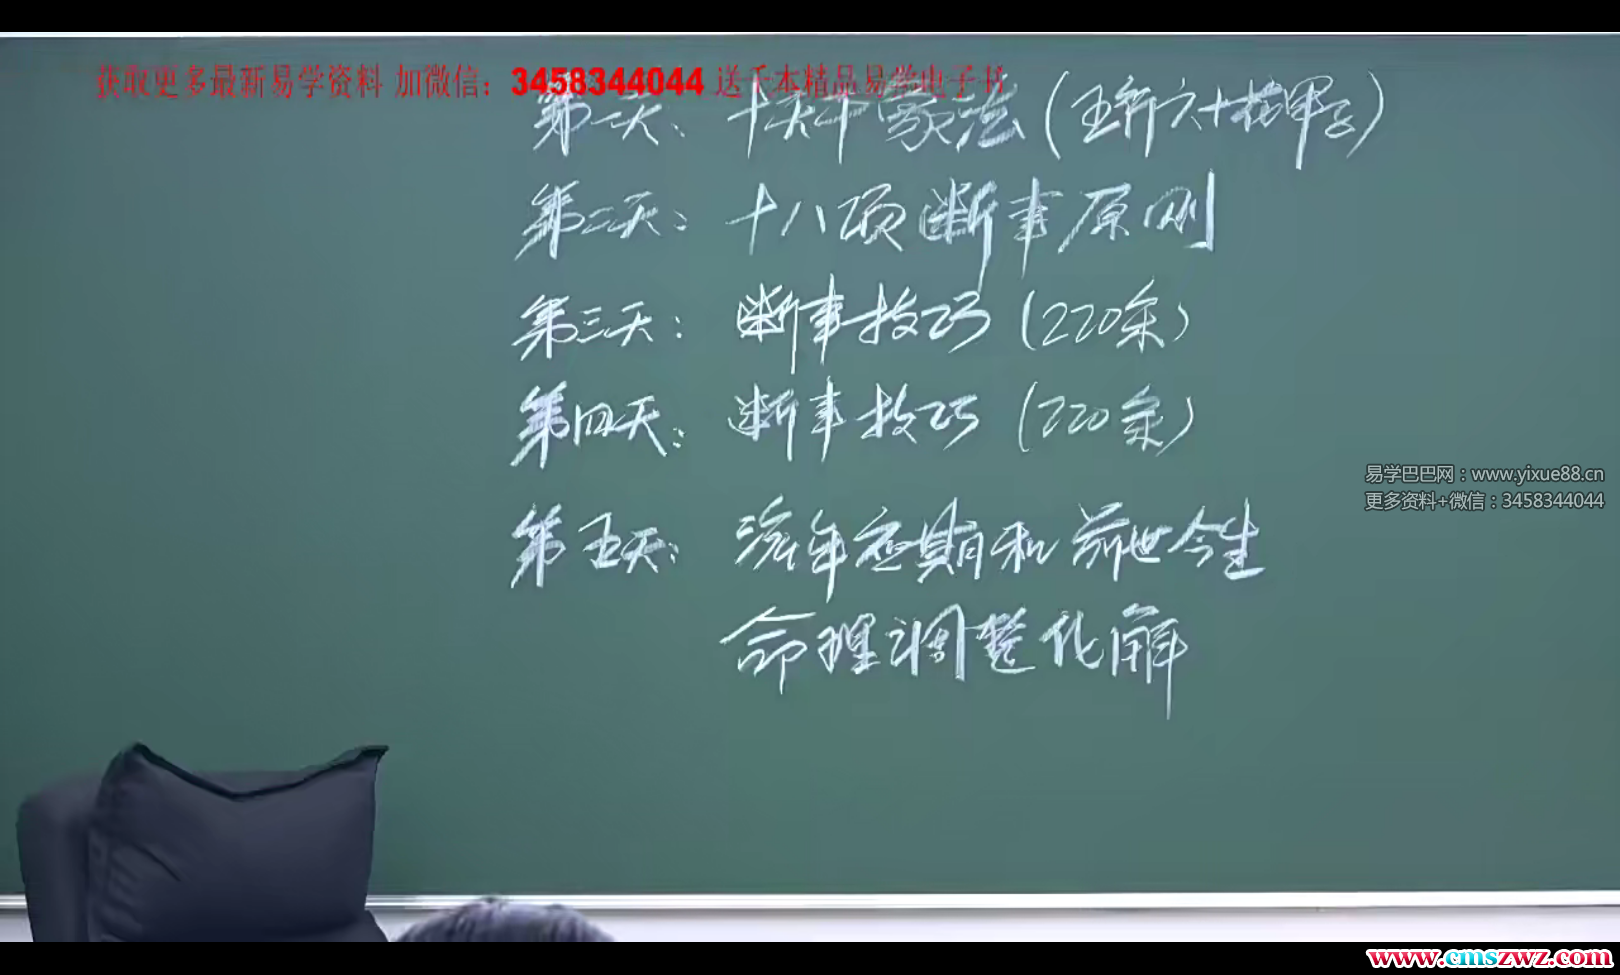 获取更多最新易学资料 加微信：3458344044 送千本精品易学电子书
第一天：十天干象法（全新六十花甲子）
第二天：十八项断事原则
第三天：断事技巧（220条）
第四天：断事技巧（220条）
第五天：流年应期和前世今生
命理调整化解
易学巴巴网：www.yixue88.cn
更多资料+微信：3458344044
www.cmszwz.com